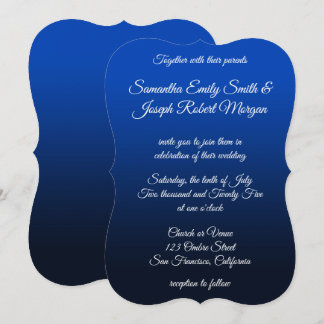 Together with their parents
Samantha Emily Smith &
Joseph Robert Morgan
invite you to join them in
celebration of their wedding
Saturday, the tenth of July
Two thousand and Twenty Five
at one o'clock
Church or Venue
123 Ombre Street
San Francisco, California
reception to follow